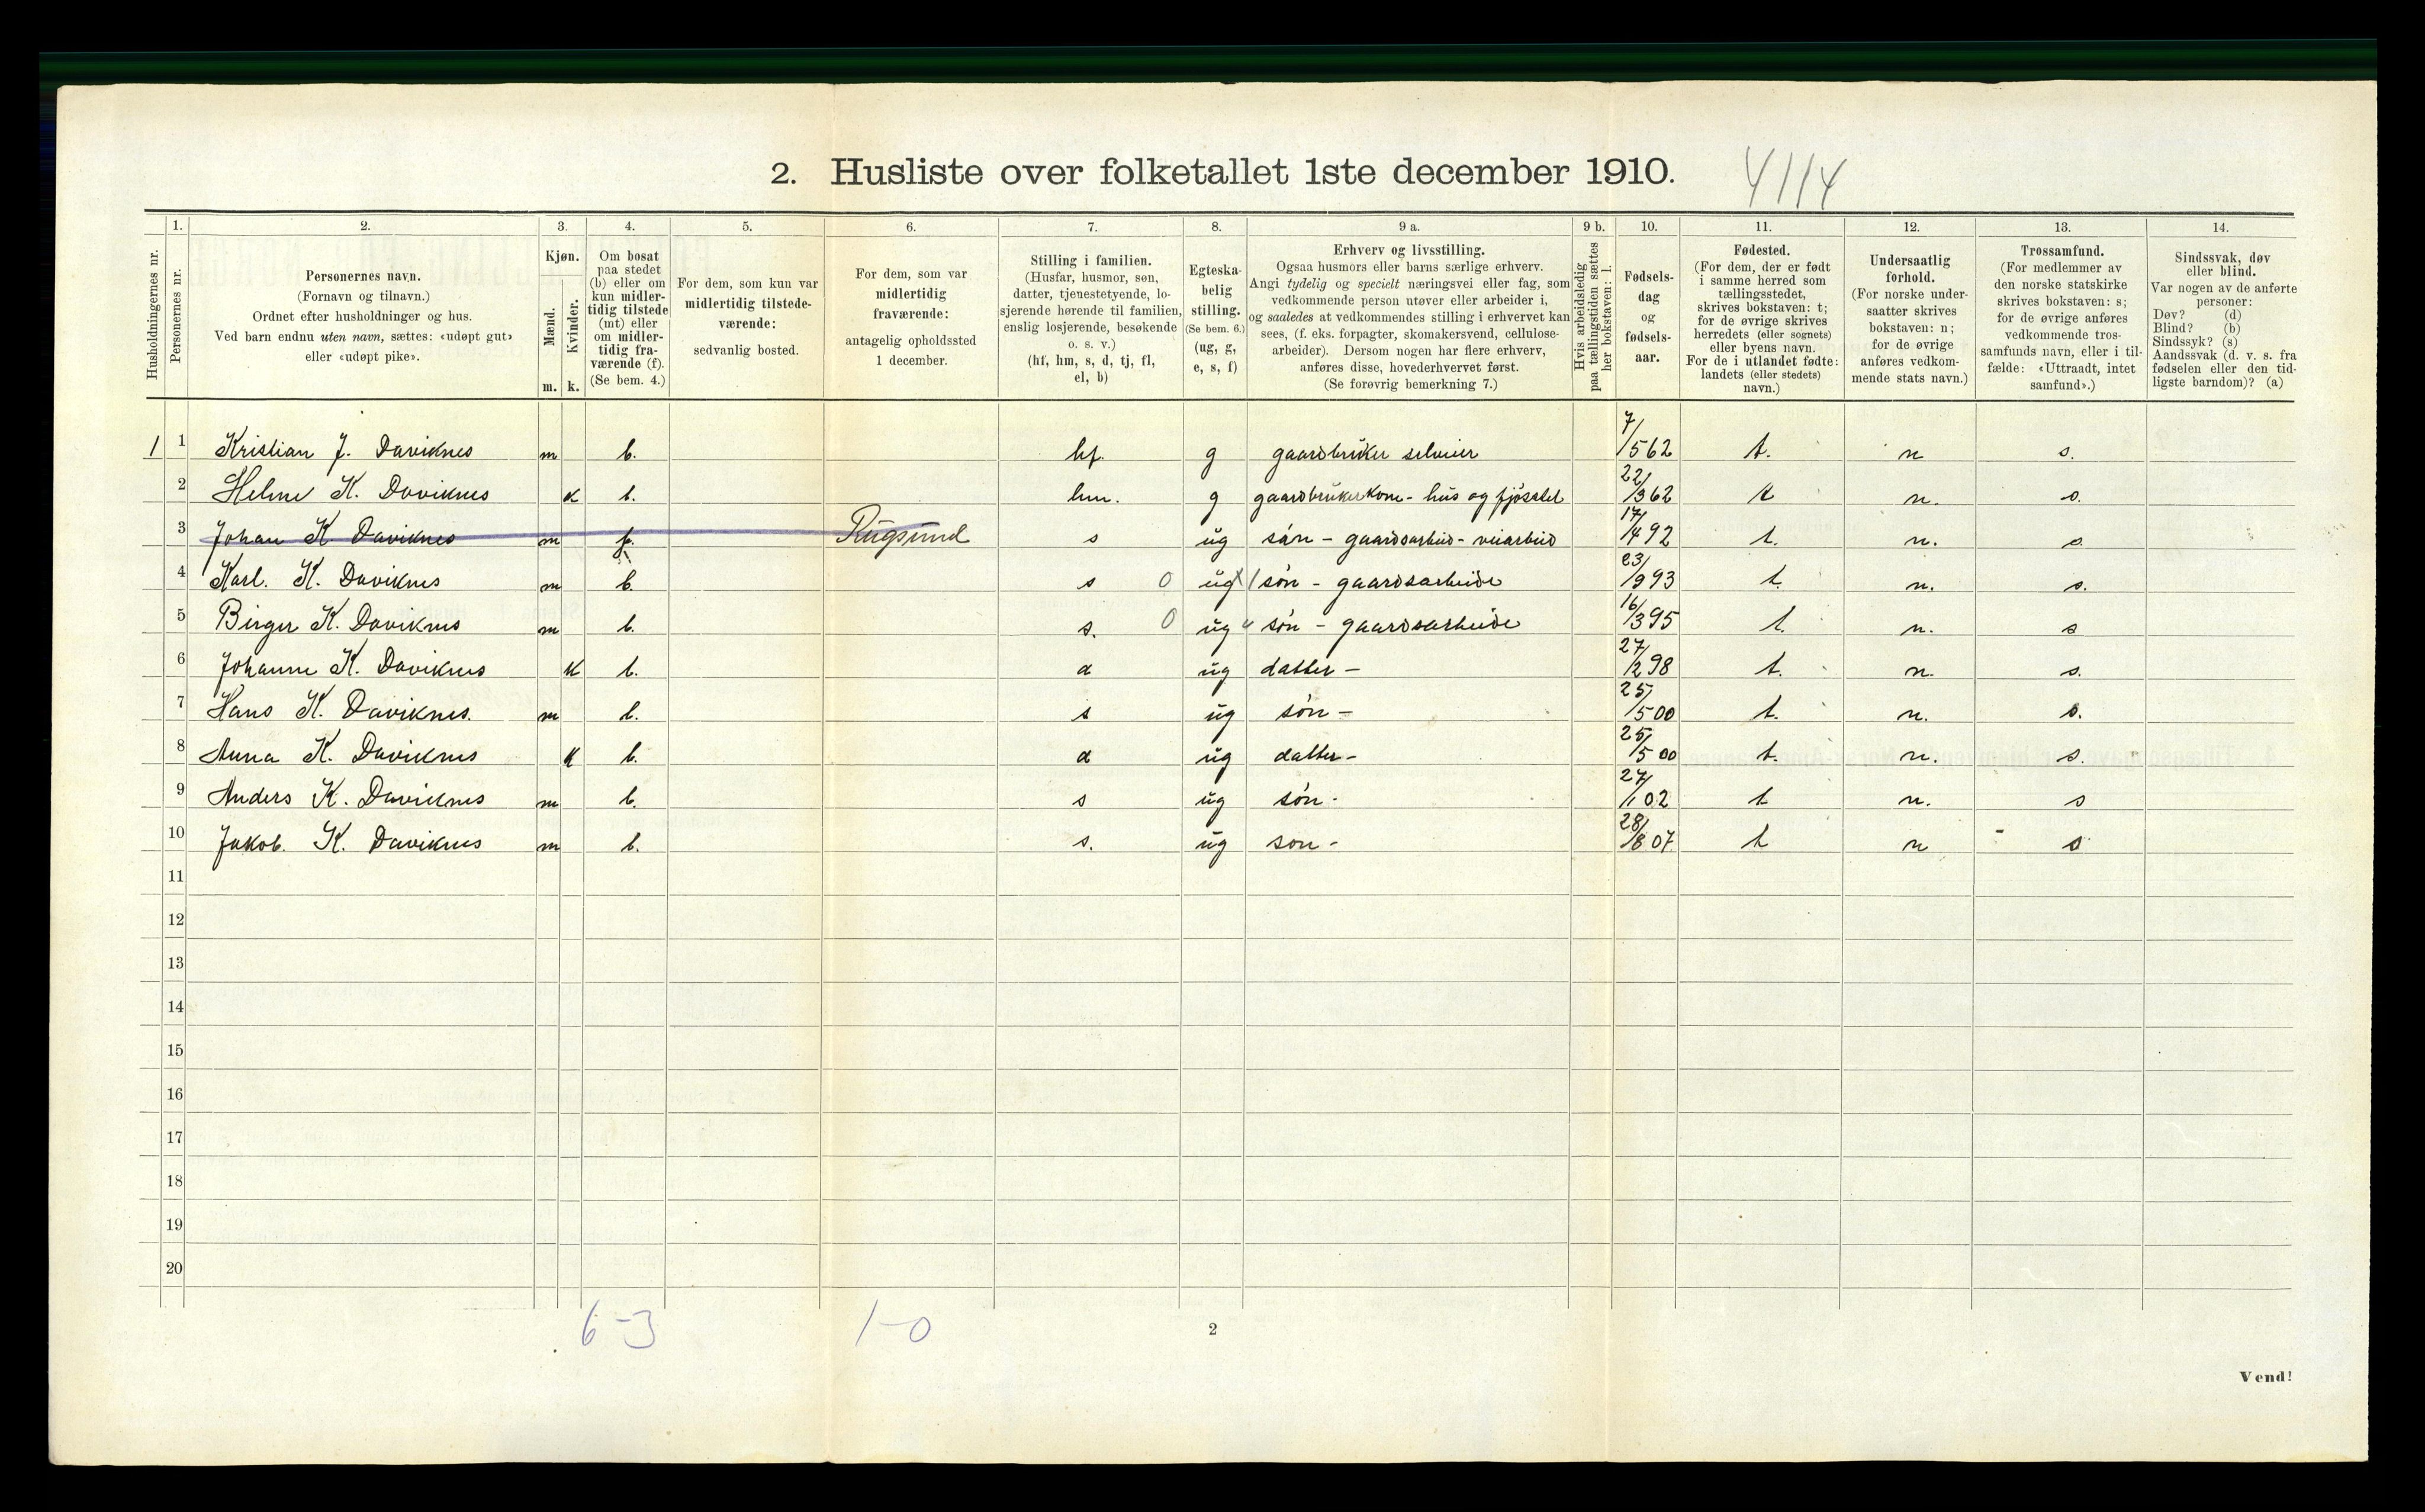 2. Husliste over folketallet 1ste december 1910.
4114
Husholdningernes nr.
1.
Personernes nr.
2.
Personernes navn.
(Fornavn og tilnavn.)
Ordnet efter husholdninger og hus.
Ved barn endnu uten navn, sættes: «udøpt gut»
eller «udøpt pike».
3.
Kjøn.
Mænd.
Kvinder.
m. k.
4.
Om bosat
paa stedet
(b) eller om
kun midler-
tidig tilstede
(mt) eller
om midler-
tidig fra-
værende (f).
(Se bem. 4.)
5.
For dem, som kun var
midlertidig tilstede-
værende:
sedvanlig bosted.
6.
For dem, som var
midlertidig
fraværende:
antagelig opholdssted
1 december.
7.
Stilling i familien.
(Husfar, husmor, søn,
datter, tjenestetyende, lo-
sjerende hørende til familien,
enslig losjerende, besøkende
o. s. v.)
(hf, hm, s, d, tj, fl,
el, b)
8.
Egteska-
belig
stilling.
(Se bem. 6.)
(ug, g,
e, s, f)
9 a.
Erhverv og livsstilling.
Ogsaa husmors eller barns særlige erhverv.
Angi tydelig og specielt næringsvei eller fag, som
vedkommende person utøver eller arbeider i,
og saaledes at vedkommendes stilling i erhvervet kan
sees, (f. eks. forpagter, skomakersvend, cellulose-
arbeider). Dersom nogen har flere erhverv,
anføres disse, hovederhvervet først.
(Se forøvrig bemerkning 7.)
9 b.
Hvis arbeidsledig
paa tællingstiden sættes
her bokstaven: l.
10.
Fødsels-
dag
og
fødsels-
aar.
11.
Fødested.
(For dem, der er født
i samme herred som
tællingsstedet,
skrives bokstaven: t;
for de øvrige skrives
herredets (eller sognets)
eller byens navn.
For de i utlandet fødte:
landets (eller stedets)
navn.)
12.
Undersaatlig
forhold.
(For norske under-
saatter skrives
bokstaven: n;
for de øvrige
anføres vedkom-
mende stats navn.)
13.
Trossamfund.
(For medlemmer av
den norske statskirke
skrives bokstaven: s;
for de øvrige anføres
vedkommende tros-
samfunds navn, eller i til-
fælde: «Uttraadt, intet
samfund».)
14.
Sindssvak, døv
eller blind.
Var nogen av de anførte
personer:
Døv? (d)
Blind? (b)
Sindssyk? (s)
Aandssvak (d. v. s. fra
fødselen eller den tid-
ligste barndom)? (a)
1 1 Kristian J. Daviknes m b. hf. g gaardbruker selveier 7/5 62 t. n s.
2 Helene K. Daviknes k b. hm. g gaardbrukerkone - hus og fjösstel 22/3 62 t n. s.
3 Johan K. Daviknes m f. Rugsund s ug sön - gaardsarbeid - veiarbeid 17/4 92 t. n. s.
4 Karl. K. Daviknes m b. s 0 ug sön - gaardsarbeide 23/9 93 t. n. s.
5 Birger K. Daviknes m b. s. 0 ug " sön - gaardsarbeide 16/3 95 t. n. s
6 Johanne K. Daviknes k b. d ug datter - 27/2 98 t. n. s.
7 Hans K. Daviknes. m b. s ug sön - 25/5 00 t. n. s.
8 Anna K. Daviknes k b. d ug datter - 25/5 00 t. n. s.
9 Anders K. Daviknes m b. s ug sön - 27/1 02 t n. s
10 Jakob. K. Daviknes m b. s. ug son - 28/8 07. t n s
11
12
13
14
15
16
17
18
19
20
6-3
1-0
2
Vend!